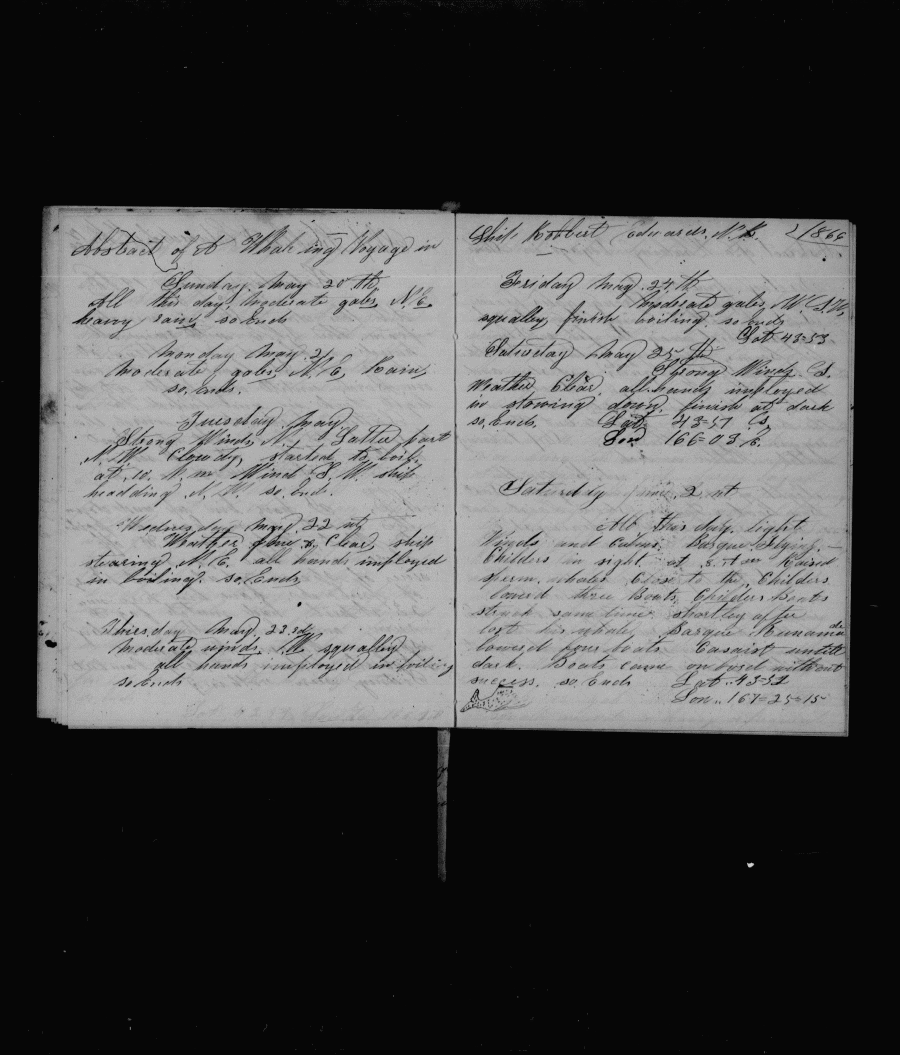 Abstract of A Whaleing Voyage in
Sunday, May 20 th,
All this day, moderate gales, N.E.
heavy rain, so Ends
Monday May. 21
moderate, gales, N. E, Rain,
so, Ends.
Tuesday, May
Strong Winds, N. Latter part
N. W. Cloudy, started to boil,
at .10. A. m. Wind S. W. ship
heading N. W. so. Ends.
Wednesday, May. 22 nt,
Weather fine & Clear, ship
stearing N. E. all hands imployed
in boiling. so. Ends
Thirsday May, 23.rd,
Moderate wind, squalley
all hands imployed in boiling
so Ends
Ship Robbert Edwards, N. B. 1866
Friday May. 24 th
Moderate gales, W. S.W,
squalley, finish boiling. so Ends
Lat 43=53
Saturday May 25 th
Strong Winds S.
Weather Clear. all hands imployed
in stowing down. finish at dark
so, Ends. Lat. 43=57 S,
Lon 166=03 E.
Saturdy June, 2 nt
All this day. light
Winds and Calms. Barque
Childers in sight. at 8. A m Raised
sperm whales Close to the Childers
lowerd three Boats, Childers Boats
struck same time shortley after
lost his whale, Barque
lowerd four boats. untill
dark. Boats came on bord without
success. so. Ends Lat. 43=52
Lon.. 167=25=15